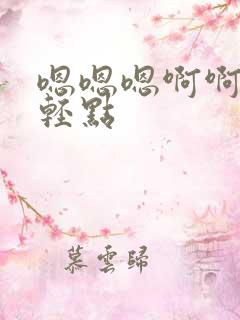 嗯嗯嗯啊啊
輕點
慕雲歸